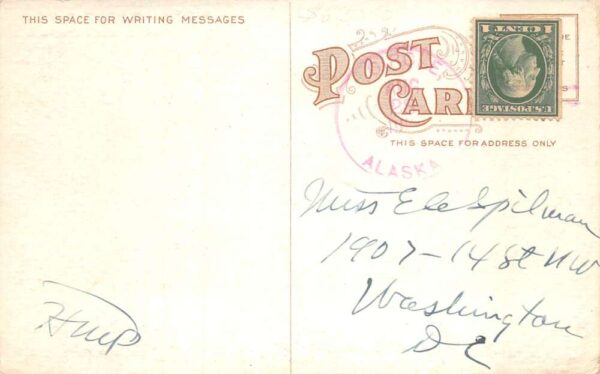 THIS SPACE FOR WRITING MESSAGES
POST
CARD
1 CENT 1
U.S. POSTAGE
THIS SPACE FOR ADDRESS ONLY
ALASKA
Miss Ele Spilman
1907-14 St NW
Washington
DC